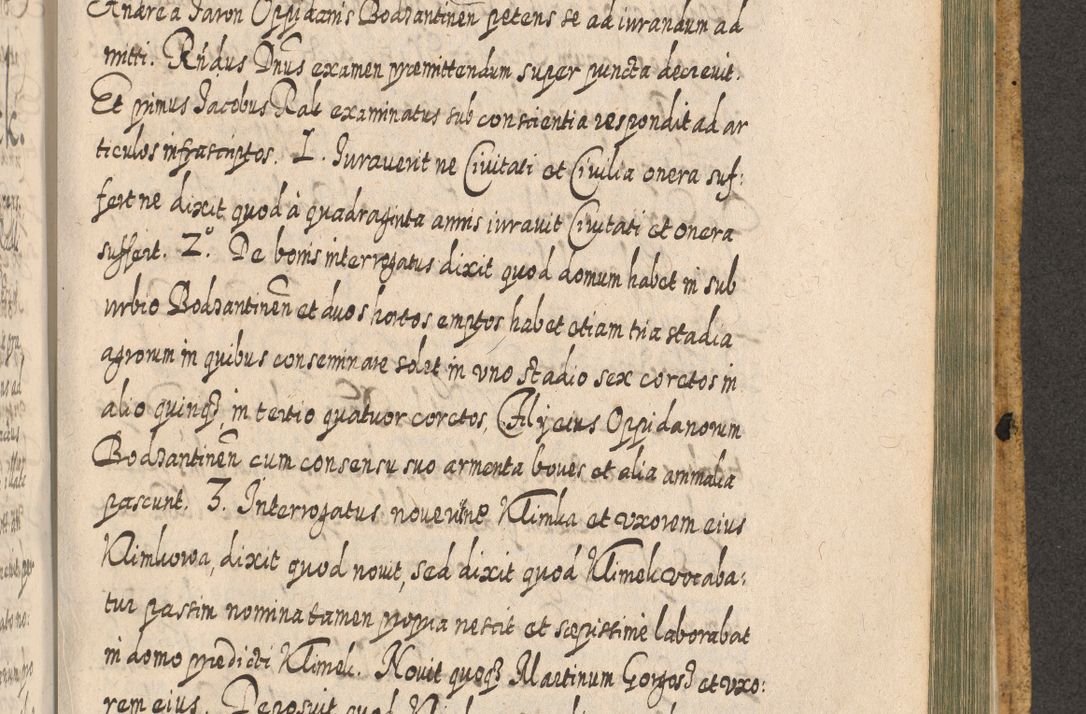 Andrea Jaron Oppidanis Bodzantinen̄ petens se ad iurandum ad
mitti. Rn̄dus Dn̄us examen præmittendum super puncta decreuit.
Et primus Jacobus Rak examinatus sub conscientia respondit ad ar
ticulos infrascriptos. 1. Jurauerit ne Ciuitati et Ciuilia onera suf:
fert ne dixit, quod à quadraginta annis iurauit Ciuitati et onera
suffert. 2º. De bonis interrogatus dixit quod domum habet in sub
urbio Bodzantinen̄ et duos hortos emptos, habet etiam tria stadia
agrorum in quibus conseminare solet in vno stadio sex coretos in
alio quinq3, in tertio quatuor coretos, Alij eius Oppidanorum
Bodzantinen̄ cum consensu suo armenta boues et alia animalia
pascunt. 3. Interrogatus nouerint Klimka et vxorem eius
Klimkowa, dixit quod nouit, sed dixit quod Klimek vocaba:
tur passim nomina tamen propria nescit et sæpissime laborabat
in domo prædicti Klimek. Nouit quoq3 Martinum et vxo:
rem eius. Deposuit quod Klimek